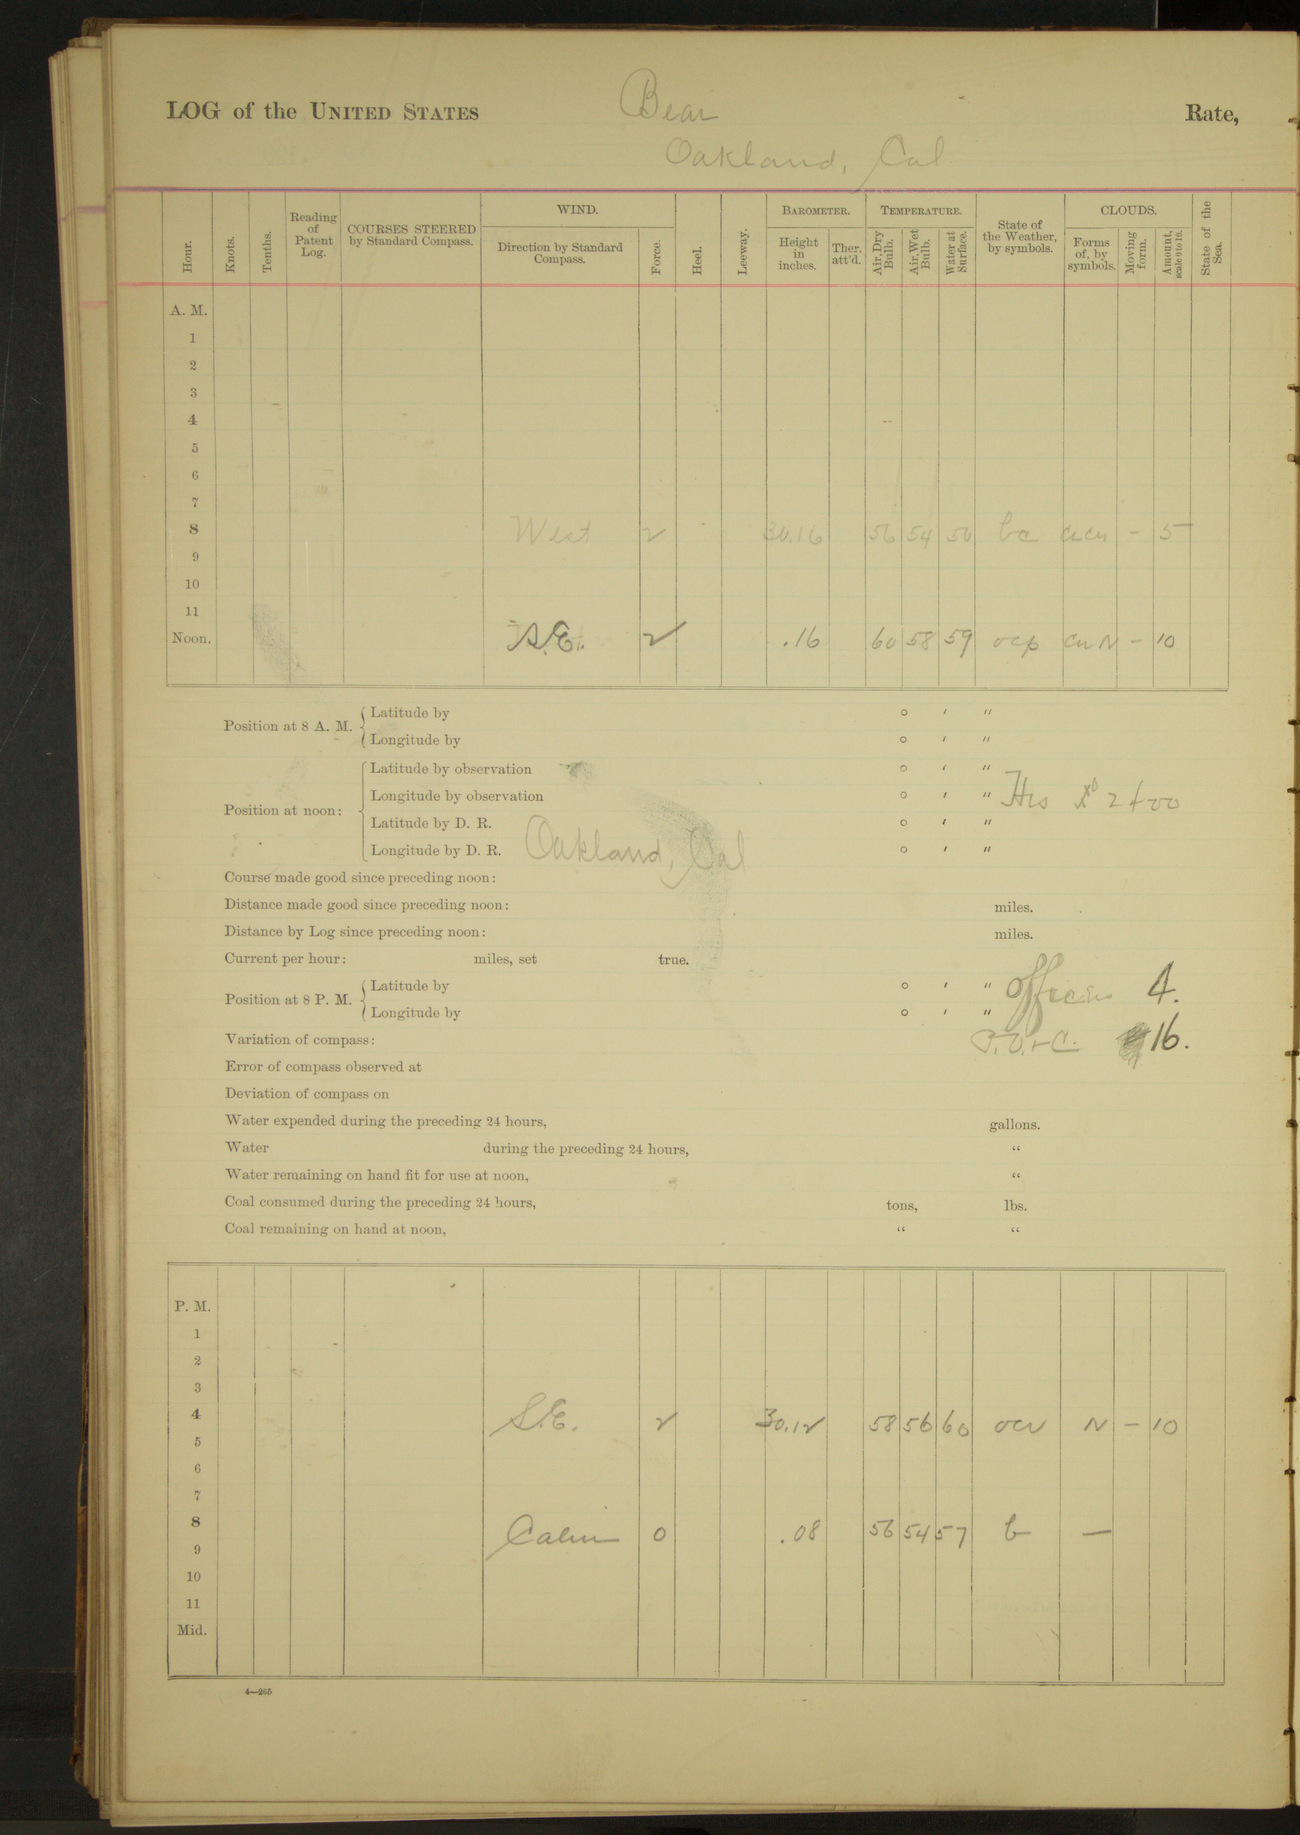 LOG of the UNITED STATES Bear Rate,
Oakland, Cal
Hour. Knots. Tenths. Reading of Patent Log. COURSES STEERED by Standard Compass. WIND. Direction by Standard Compass. Force. Heel. Leeway. BAROMETER. Height in inches. Ther. att'd. TEMPERATURE. Air, Dry Bulb. Air, Wet Bulb. Water at Surface. State of the Weather, by symbols. CLOUDS. Forms of, by symbols. Moving form. Amount, scale 0 to 10. State of the Sea.
A. M.
1
2
3
4
5
6
7
8 West 2 30.16 56 54 50 bc - 5
9
10
11
Noon. S.E. 2 .16 60 58 59 ocp cu N - 10
Position at 8 A. M. Latitude by ° ′ ″
Longitude by ° ′ ″
Position at noon: Latitude by observation ° ′ ″
Longitude by observation ° ′ ″
Latitude by D. R. ° ′ ″
Longitude by D. R. Oakland, Cal ° ′ ″
Course made good since preceding noon:
Distance made good since preceding noon: miles.
Distance by Log since preceding noon: miles.
Current per hour: miles, set true.
Position at 8 P. M. Latitude by ° ′ ″ Officers 4.
Longitude by ° ′ ″
Variation of compass: 16.
Error of compass observed at
Deviation of compass on
Water expended during the preceding 24 hours, gallons.
Water during the preceding 24 hours, “
Water remaining on hand fit for use at noon, “
Coal consumed during the preceding 24 hours, tons, lbs.
Coal remaining on hand at noon, “ “
P. M.
1
2
3
4 S.E. 2 30.12 58 56 60 N - 10
5
6
7
8 Calm 0 .08 56 54 57 b —
9
10
11
Mid.
4—265